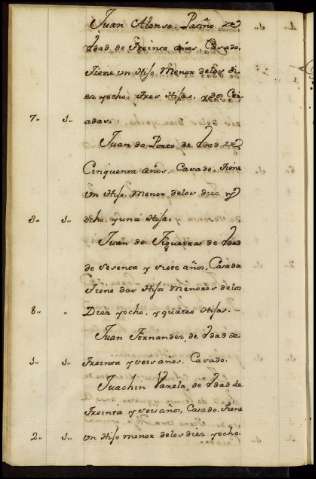 Juan Alonso Patiño de
Edad de Treinta años, Casado,
Tiene un Hijo Menor de los di
ez y ocho, tres Hijas, dos Cri
7. 1. adas.
Juan do Porto de Edad de
Cinquenta años, Casado, tiene
un Hijo, menor de los diez y
8. 1. ocho, y una Hija.
Juan de Figueiras de Edad
de sesenta y siete años, Casado
tiene dos Hijos Menores de los
8. Diez y ocho, y quatro Hijas.
Juan Fernandez, de Edad de
1. 1. treinta y seis años, Casado.
Juachin Varela de Edad de
treinta y seis años, Casado, tiene
2. 1. un Hijo menor de los diez y ocho.